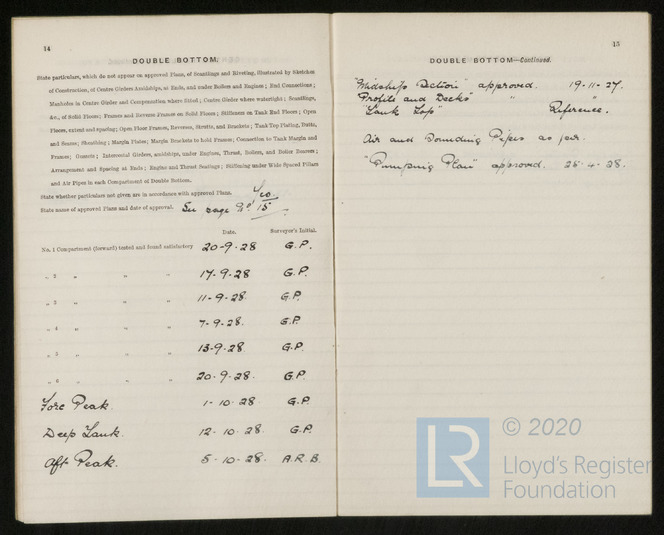 14
DOUBLE BOTTOM.
State particulars, which do not appear on approved Plans, of Scantlings and Riveting, illustrated by Sketches
of Construction, of Centre Girders Amidships, at Ends, and under Boilers and Engines; End Connections;
Manholes in Centre Girder and Compensation where fitted; Centre Girder where watertight; Scantlings,
&c., of Solid Floors; Frames and Reverse Frames on Solid Floors; Stiffeners on Tank End Floors; Open
Floors, extent and spacing; Open Floor Frames, Reverses, Struts, and Brackets; Tank Top Plating, Butts,
and Seams; Sheathing; Margin Plates; Margin Brackets to hold Frames; Connection to Tank Margin and
Frames; Gussets; Intercostal Girders, amidships, under Engines, Thrust, Boilers, and Boiler Bearers;
Arrangement and Spacing at Ends; Engine and Thrust Seatings; Stiffening under Wide Spaced Pillars
and Air Pipes in each Compartment of Double Bottom.
State whether particulars not given are in accordance with approved Plans. Yes.
State name of approved Plans and date of approval. See page No 15.
Date. Surveyor's Initial.
No. 1 Compartment (forward) tested and found satisfactory 20-9-28 G.P.
„ 2 „ „ „ 17-9-28 G.P.
„ 3 „ „ „ 11-9-28. G.P.
„ 4 „ „ „ 7-9-28. G.P.
„ 5 „ „ „ 13-9-28. G.P.
„ 6 „ „ „ 20-9-28. G.P.
Fore Peak. 1-10-28 G.P.
Deep Tank. 12-10-28. G.P.
Aft Peak. 5-10-28. A.R.B.
15
DOUBLE BOTTOM—Continued.
"Midships Section" approved. 19-11-27.
"Profile and Decks" " "
"Tank Top" Reference.
Air and Sounding Pipes as per.
"Pumping Plan" approved. 25-4-28.
LR © 2020
Lloyd's Register
Foundation